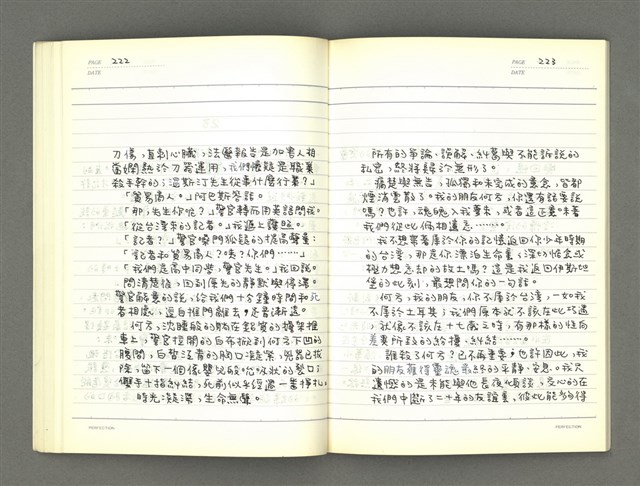 PAGE 222
DATE
刀傷，直刺心臟，法醫報告是加害人相
當嫻熟於刀器運用，我們懷疑是職業
殺手幹的；溫斯汀先生從事什麼行業？」
「貿易商人。」阿巴斯答話。
「那，先生你呢？」警官轉而用英語問我。
「從台灣來的記者。」我遞上護照。
「記者？」警官喉門狐疑的提高聲量：
「記者和貿易商人？嗯？你們……」
「我們是高中同學，警官先生。」我回說。
問清楚後，回到原先的靜默與停滯。
警官解意的說，給我們十分鐘時間和死
者相處，逕自推門離去，走音漸遠。
何方，沈睡般的躺在銀窖的擔架推
車上，警官拉開的白布掀到何方下凹的
腰間，白皙泛青的胸口凝紫，兇器已拔
除，留下一個像嬰兒般吮吸狀的裂口；
雙手十指糾結，死前似乎經過一番掙扎。
時光凝滯，生命無聲。
PERFECTION
PAGE 223
DATE
所有的爭論、誤解、糾葛與不能訴說的
私密，終將歸於無形了。
痛楚與無告，孤傷和未完成的意念，皆都
煙消雲散了。我的朋友何方，你還有話要說
嗎？也許，魂魄入我夢來，或者這正意味著
我們從此倆相遺忘……。
我不想帶著屬於你的記憶返回你少年時期
的台灣，那是你漂泊生命裏，深切惦念或
極力想忘卻的故土嗎？這是我返回伊斯坦
堡的此刻，最想問你的一句話。
何方，我的朋友，你不屬於台灣，一如我
不屬於土耳其；我們原本就不該在此巧遇
，就像不該在十七歲之時，有那樣的性向
差異所設的紛擾、糾結……。
誰殺了何方？已不再重要，也許因此，我
的朋友獲得靈魂最終的平靜、安息。我只
遺憾的是未能與他長夜傾談，交心的在
我們中斷了二十年的友誼裏，彼此能多的得
PERFECTION